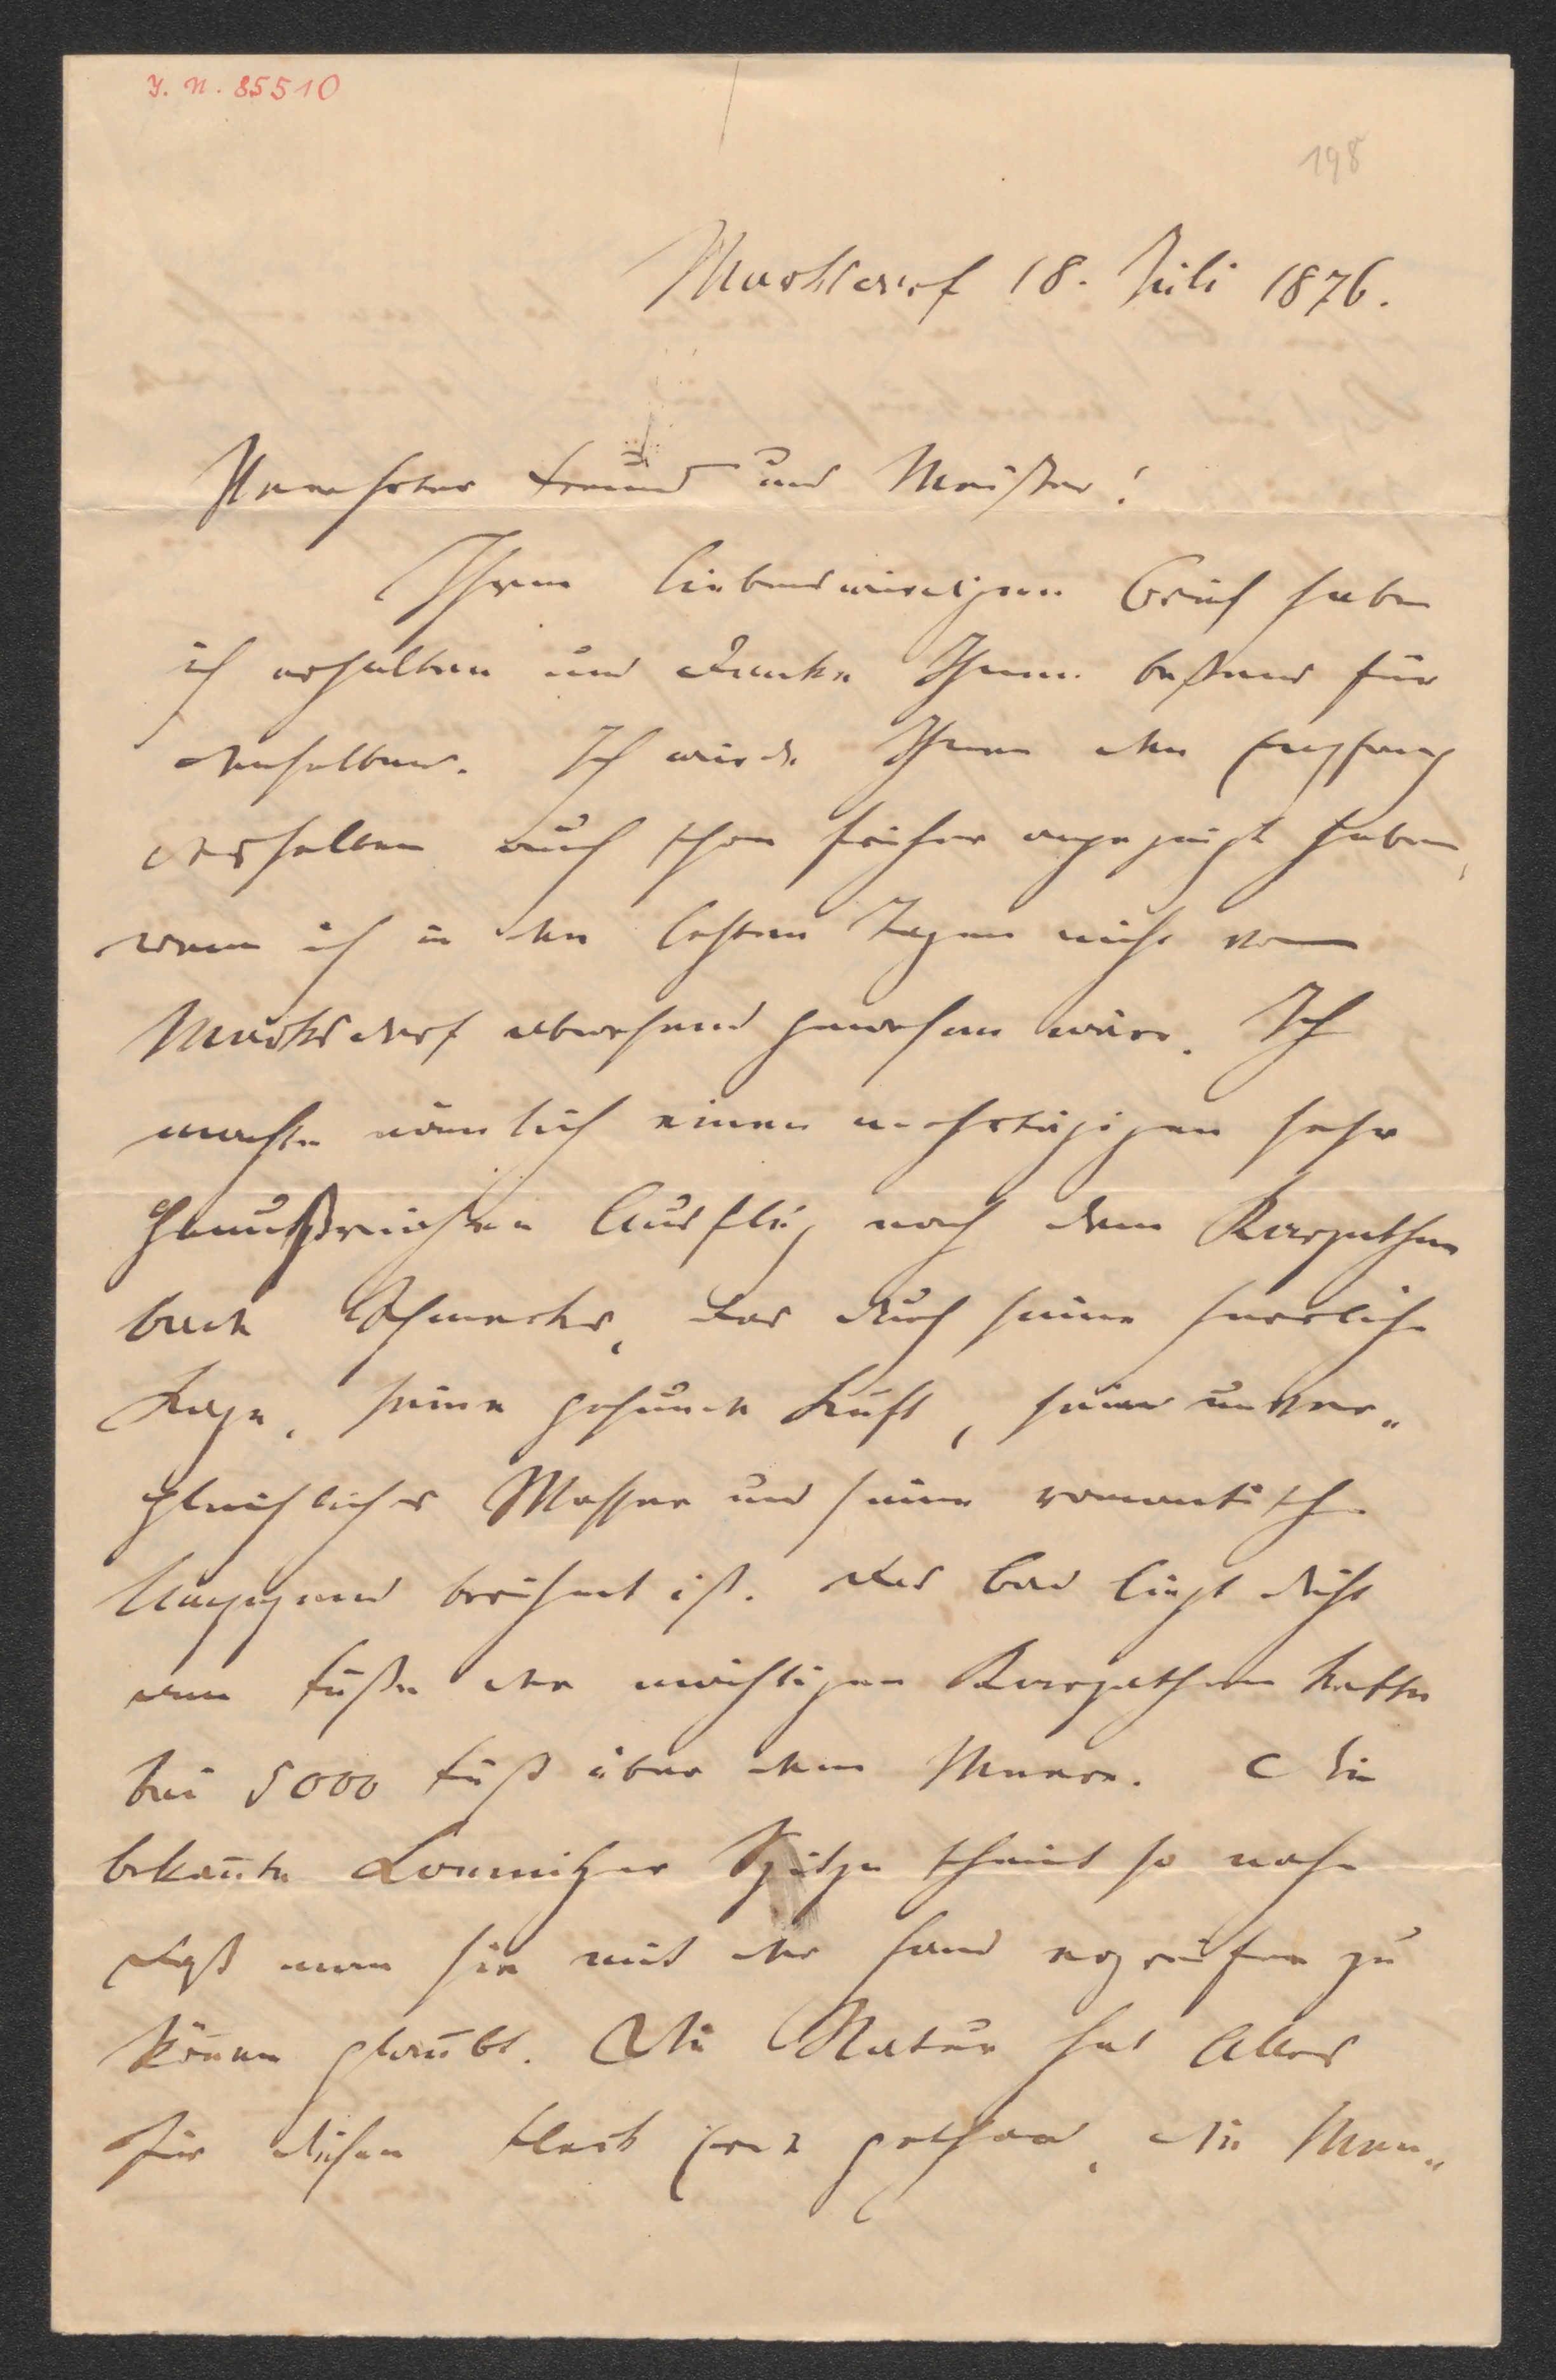 J. N. 85510
198
Marksdorf 18. Juli 1876.
Verehrter Freund und Meister!
Ihren liebenswürdigen Brief habe
ich erhalten und danke Ihnen bestens für
denselben. Ich würde Ihnen den Empfang
desselben auch schon früher angezeigt haben,
wenn ich in den letzten Tagen nicht von
Marksdorf abwesend gewesen wäre. Ich
machte nämlich einen mehrtägigen sehr
genußreichen Ausflug nach dem Karpathen
bade Schmecks, das durch seine herrliche
Lage, seine gesunde Luft, sein unver„
gleichliches Wasser und seine romantische
Umgegend berühmt ist. Das Bad liegt dicht
am Fuße der mächtigen Karpathen kette
bei 5000 Fuß über dem Meere. Die
bekañte Lomnitzer Spitze scheint so nahe
daß man sie mit der Hand ergreifen zu
köñen glaubt. Die Natur hat Alles
für diesen Fleck Erde gethan, die Men„